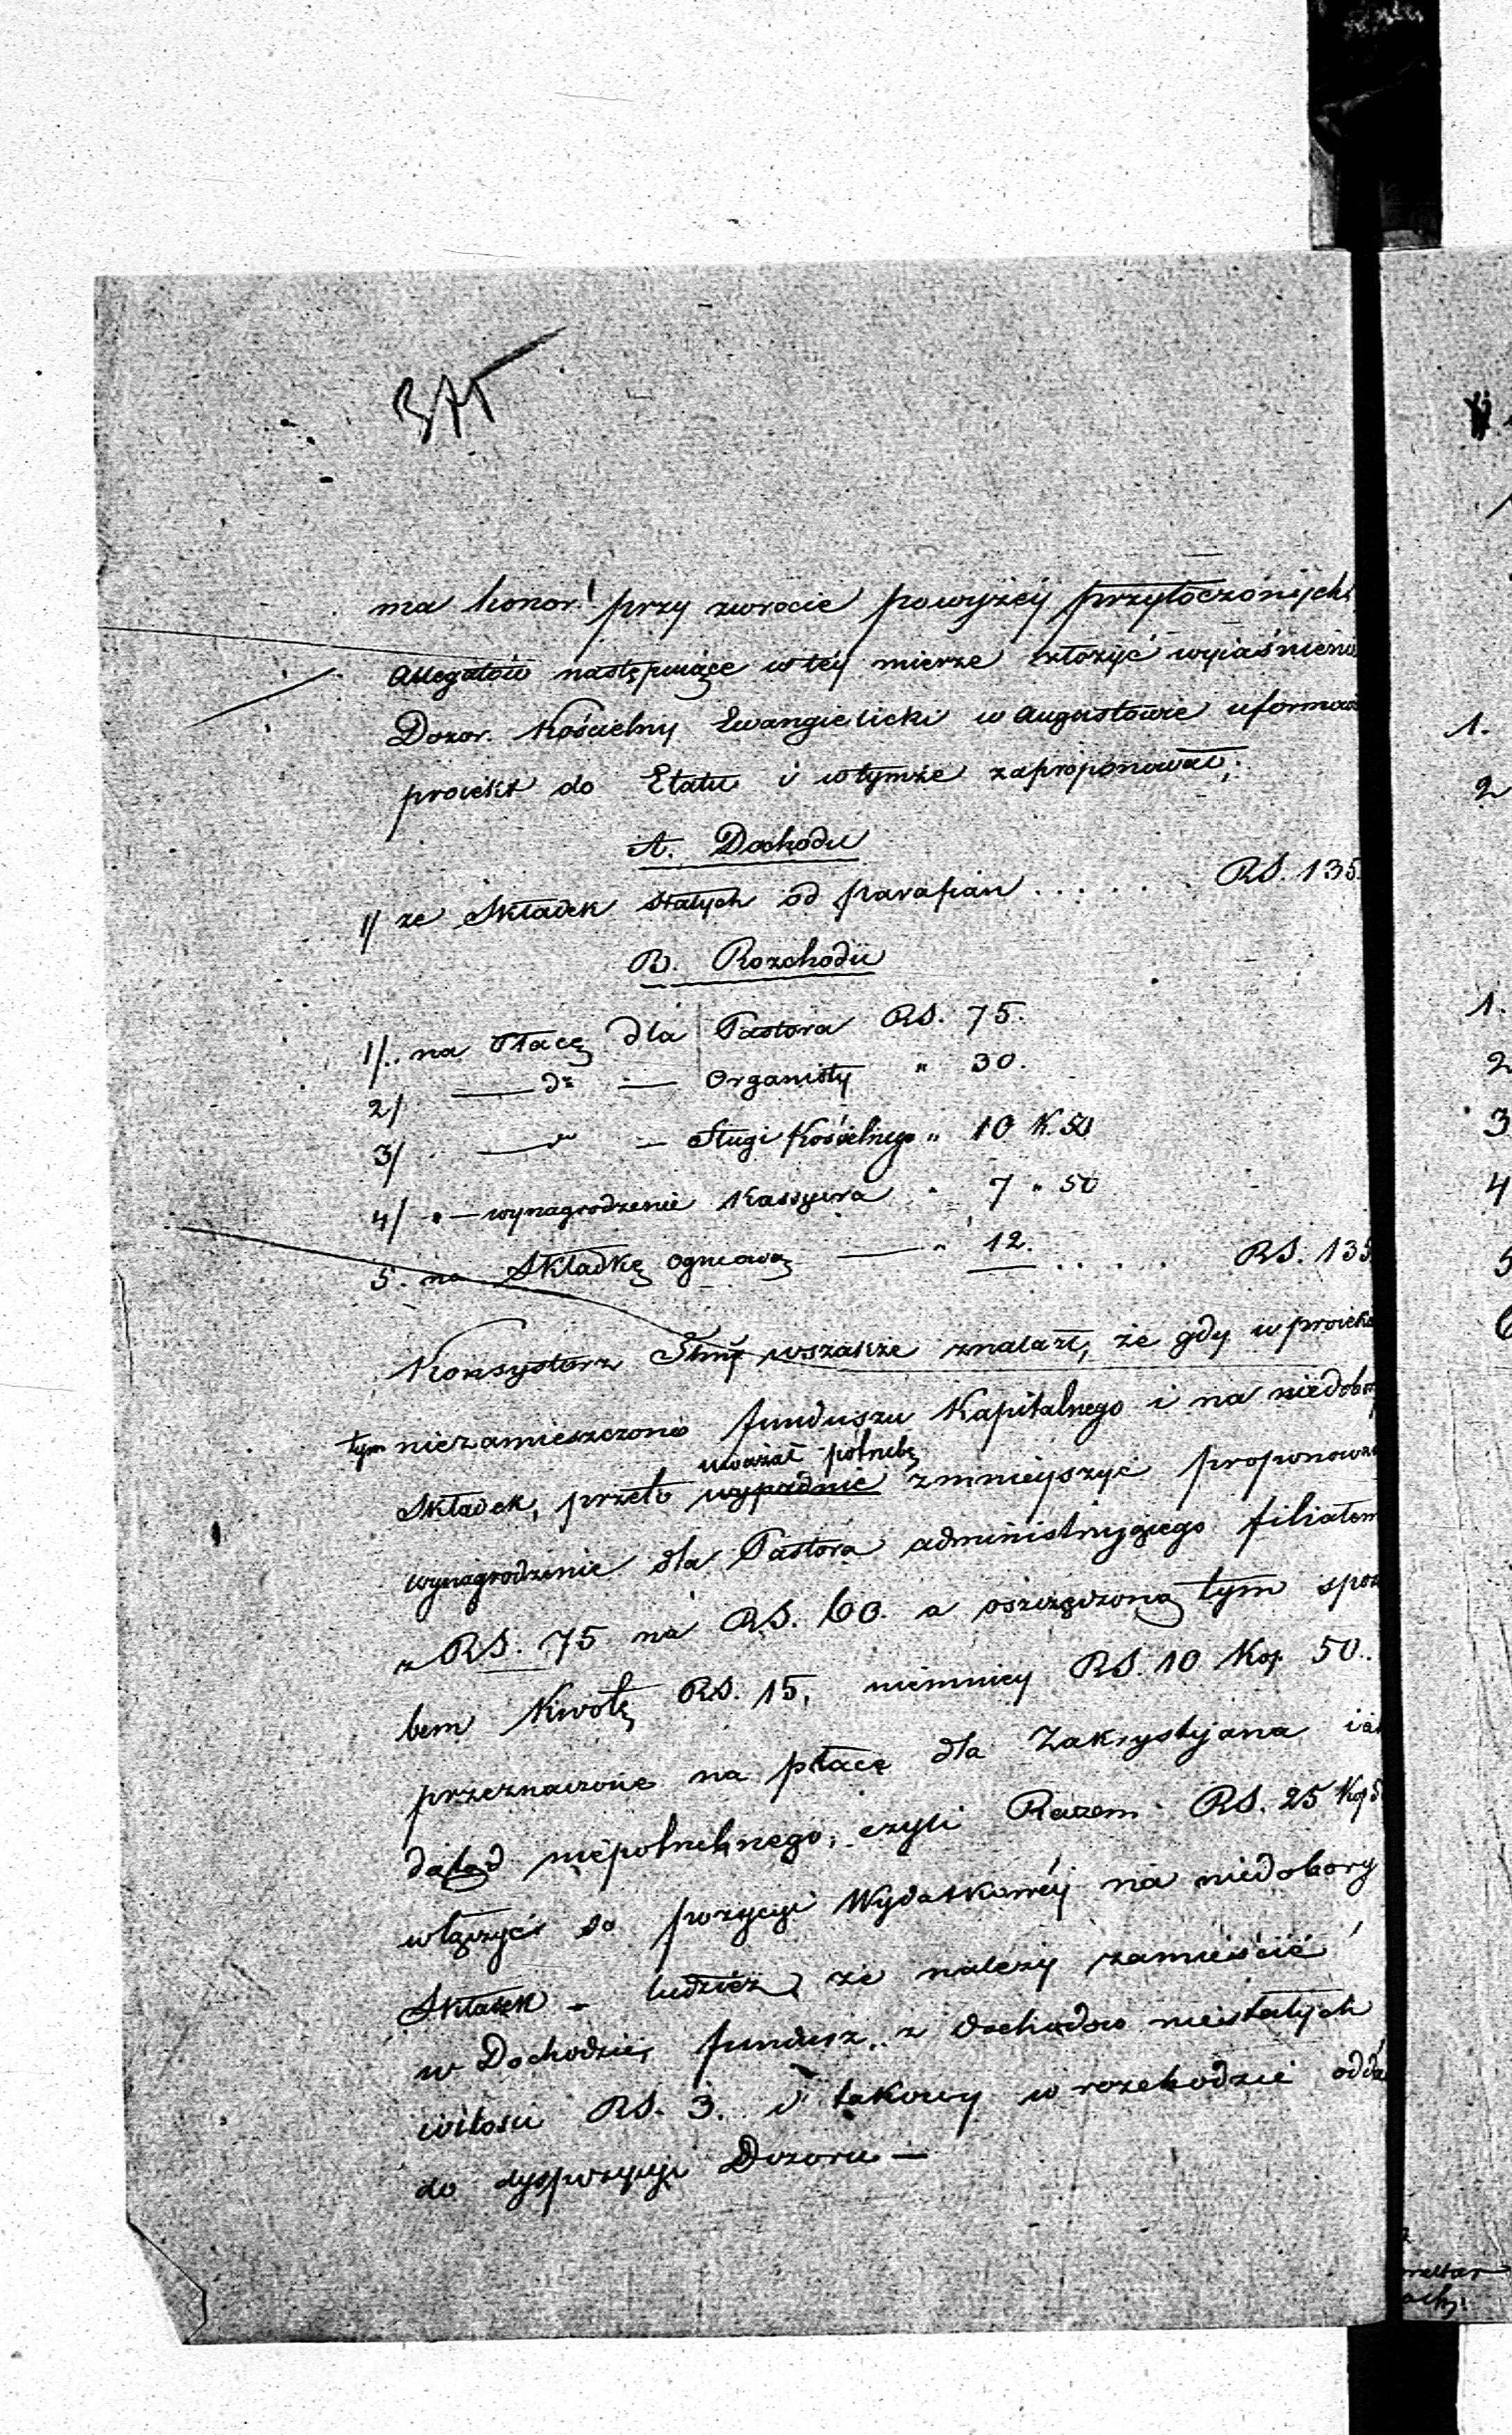 ma honor. przy zwrocie powyżéy przytoczonych
Allegatów następuiące w téy mierze złożyć wyiaśnieni
Dozor. Kościelny Ewangielicki w Augustowie uformow
proiekt do Etatu i w tymże zaproponował;
A. Dochodu
1/ ze Składek stałych od parafian . . . . . RS. 135.
B. Rozchodu
1/. na Płacę dla Pastora RS. 75.
2/ — do — Organisty " 30.
3/ — " — Sługi Kościelnego " 10 K. 50
4/ " — wynagrodzenie Kassyera " 7 " 50
5. na Składkę ogniową — " 12. . . . . RS. 135
Konsystorz wszakże znalazł, że gdy w proiek
tym niezamieszczono funduszu Kapitalnego i na niedobo
uważał potrzebę
Składek, przeto wypadnie zmnieyszyć proponowa
wynagrodzenie dla Pastora administruiącego filiałem
z RS. 75 na RS. 60. a oszczędzoną tym spos
bem Kwotę RS. 15, niemniey RS. 10 Kop. 50.
przeznaczone na płacę dla Zakrystyjana ia
dotąd niepotrzebnego, czyli Razem RS. 25 Kop
włączyć do pozycyi Wydatkowéy na niedobory
Składek – tudzież, że należy zamieścić
w Dochodzie, fundusz z dochodów niestałych
w ilości RS. 3. i takowy w rozchodzie odda
do dyspozycyi Dozoru —
1.
2
1.
2
3
4
5
6